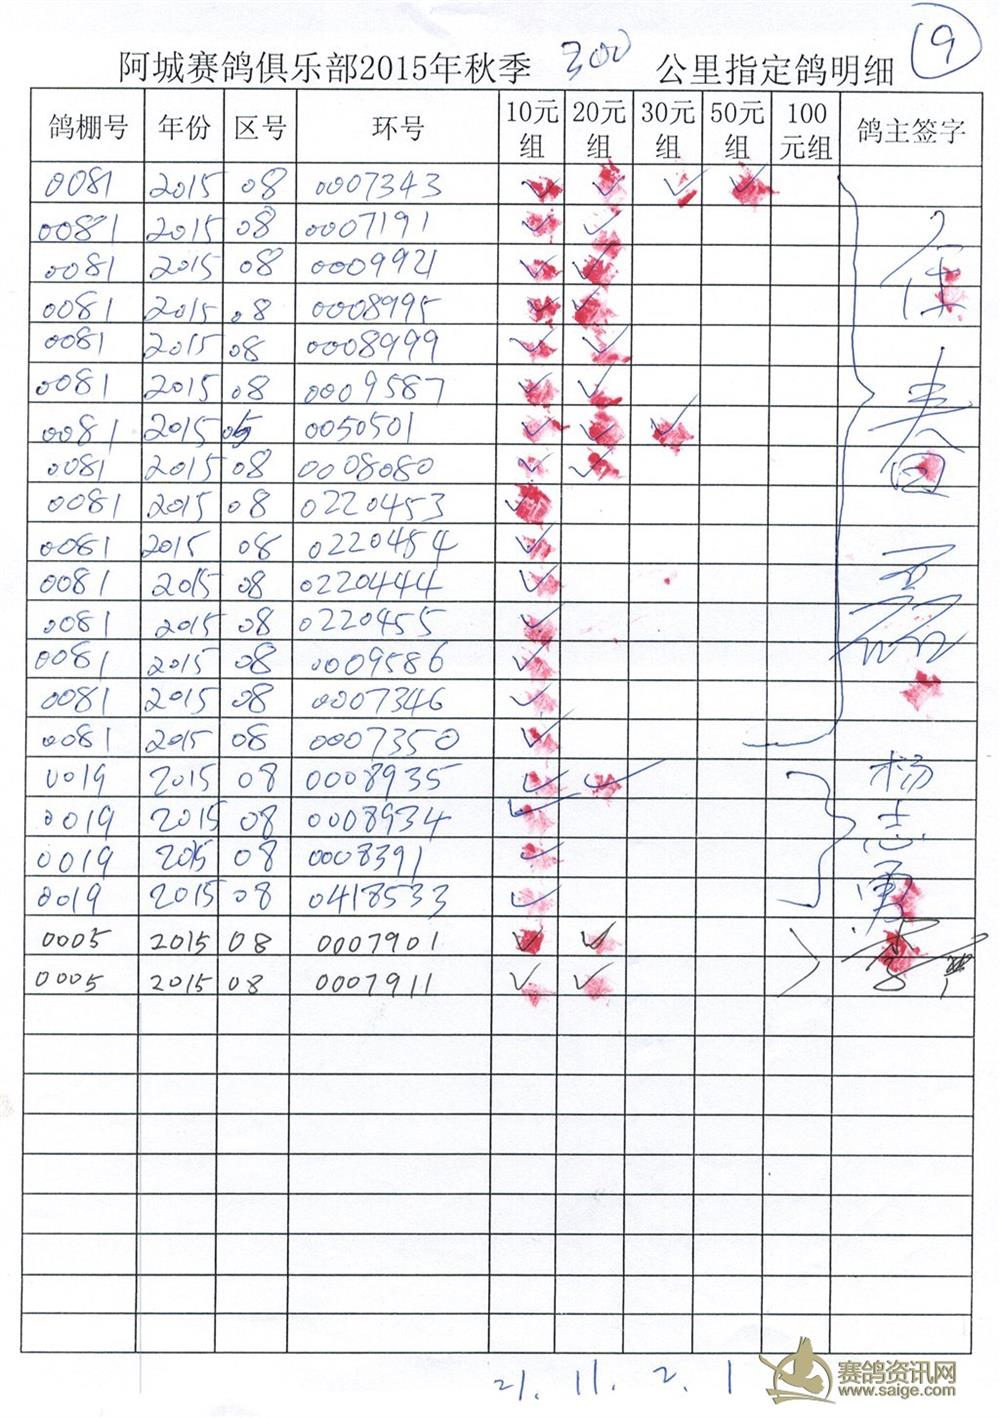 ⑨
阿城赛鸽俱乐部2015年秋季 300 公里指定鸽明细
鸽棚号 年份 区号 环号 10元组 20元组 30元组 50元组 100元组 鸽主签字
0081 2015 08 0007343 ✓ ✓ ✓ ✓
0081 2015 08 0007191 ✓ ✓
0081 2015 08 0009921 ✓ ✓
0081 2015 08 0008995 ✓ ✓
0081 2015 08 0008999 ✓ ✓
0081 2015 08 0009587 ✓ ✓
0081 2015 05 0050501 ✓ ✓ ✓
0081 2015 08 0008080 ✓ ✓
0081 2015 08 0220453 ✓
0081 2015 08 0220484 ✓
0081 2015 08 0220444 ✓
0081 2015 08 0220455 ✓
0081 2015 08 0009586 ✓
0081 2015 08 0007346 ✓
0081 2015 08 0007350 ✓
0019 2015 08 0008935 ✓ ✓ 杨志勇
0019 2015 08 0008934 ✓
0019 2015 08 0008391 ✓
0019 2015 08 0418533 ✓
0005 2015 08 0007901 ✓ ✓
0005 2015 08 0007911 ✓ ✓
21. 11. 2. 1
赛鸽资讯网
www.saige.com